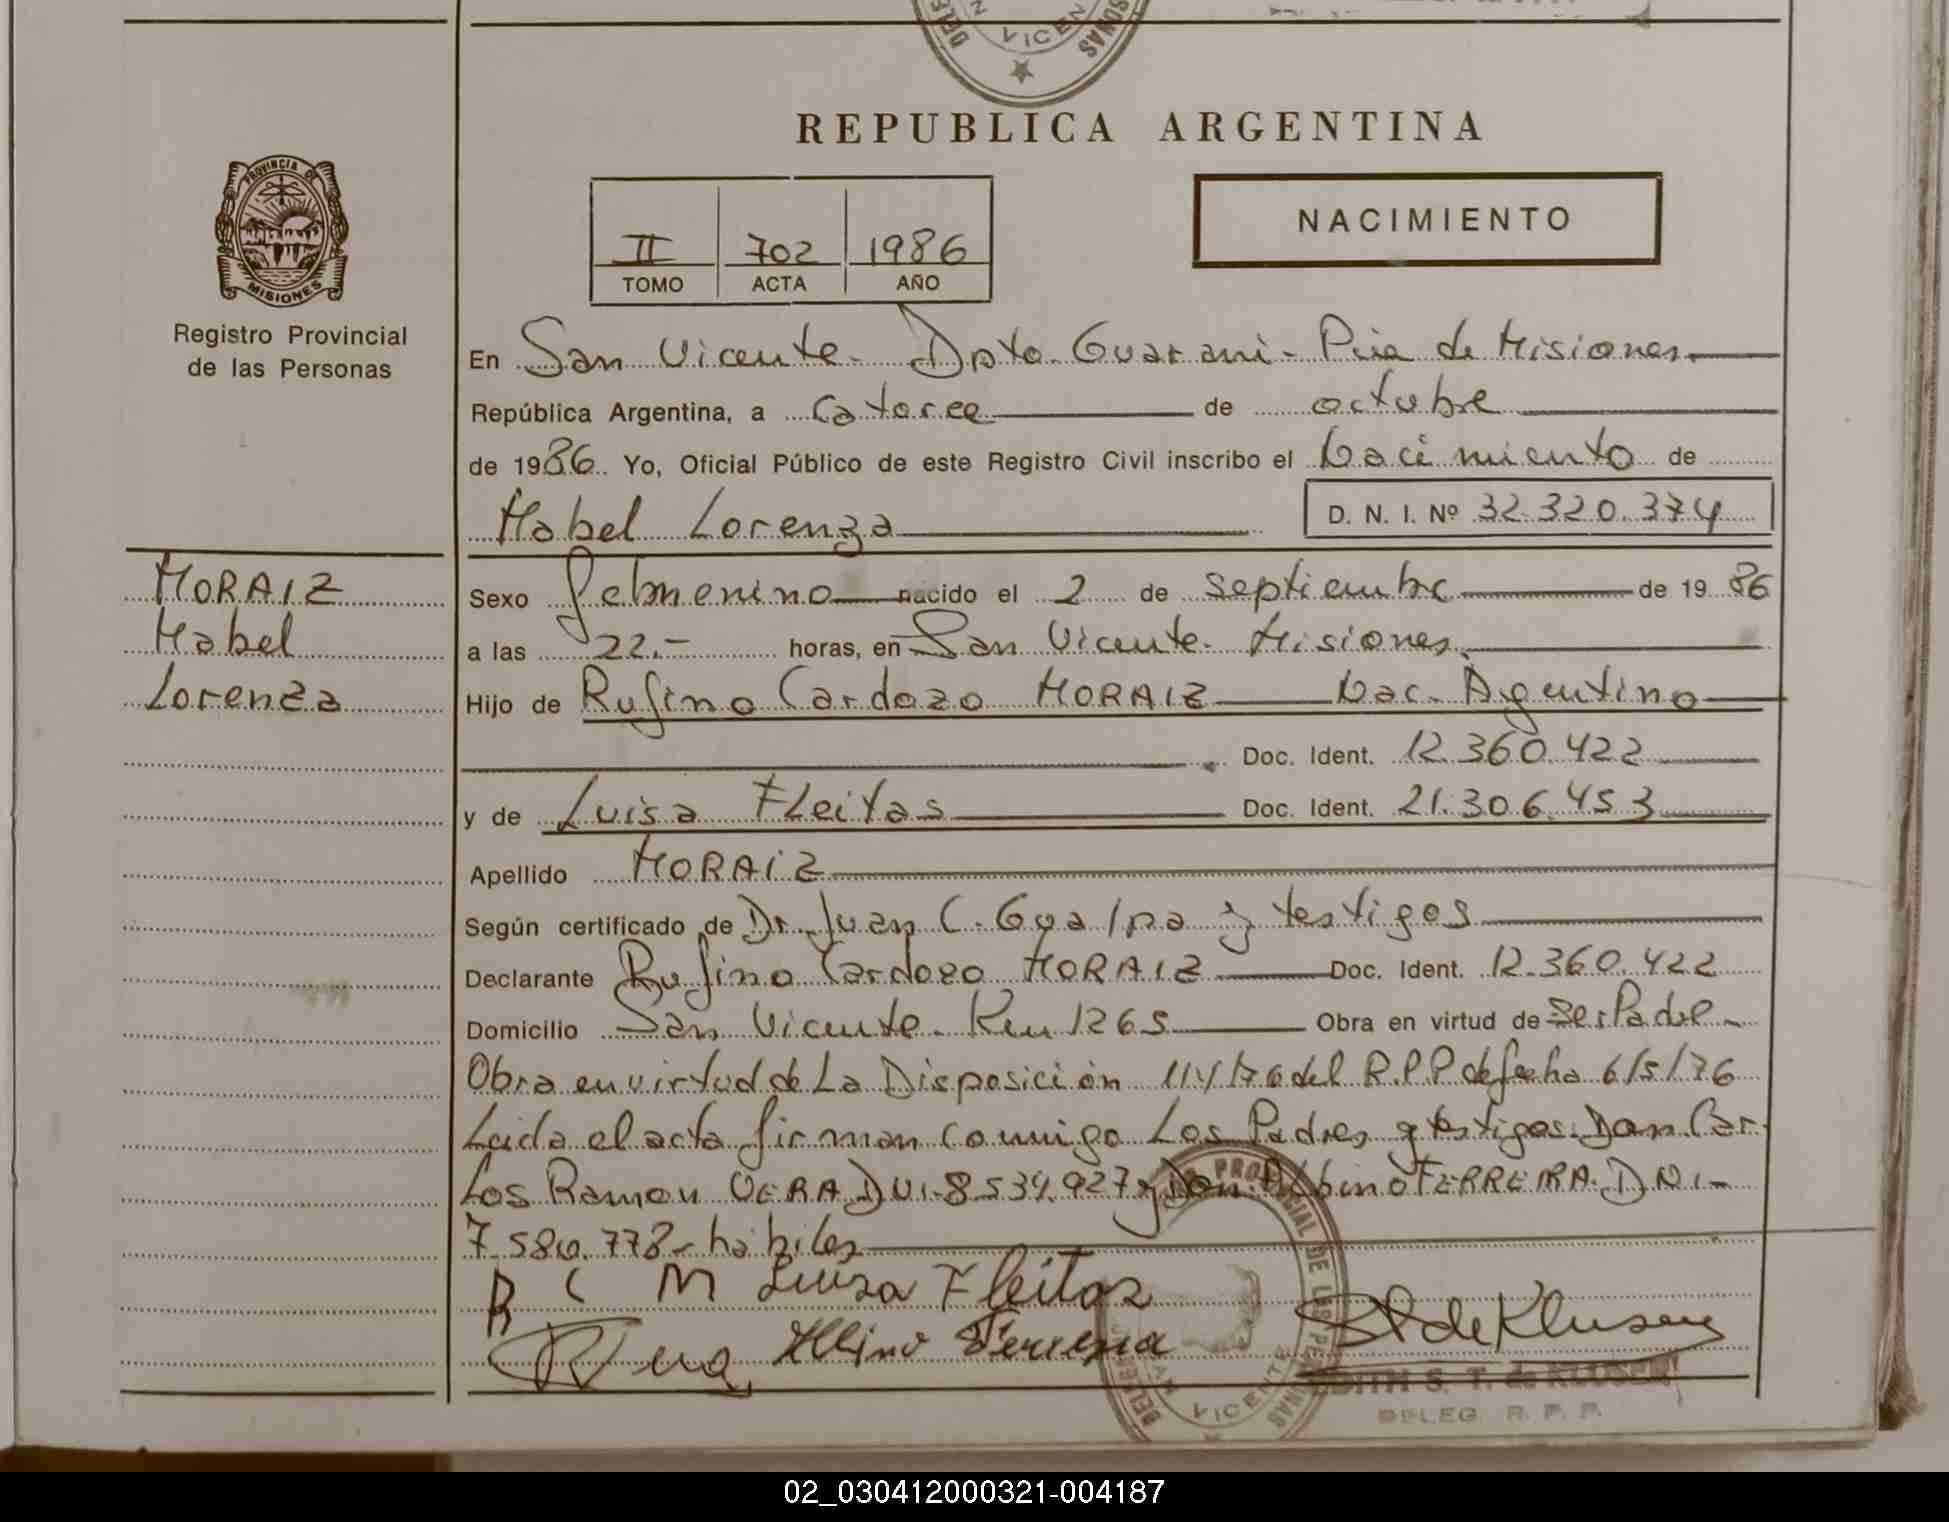 VICEN
REPUBLICA ARGENTINA
PROVINCIA DE
MISIONES
Registro Provincial
de las Personas
II 702 1986
TOMO ACTA AÑO
NACIMIENTO
En San Vicente - Dpto Guarani - Pcia de Misiones
República Argentina, a Catorce de octubre
de 1986. Yo, Oficial Público de este Registro Civil inscribo el Nacimiento de
Mabel Lorenza D. N. I. Nº 32.320.374
MORAIZ
Mabel
Lorenza
Sexo femenino nacido el 2 de septiembre de 1986
a las 22.- horas, en San Vicente - Misiones.
Hijo de Rufino Cardozo MORAIZ Nac. Argentino
Doc. Ident. 12.360.422
y de Luisa FLeitas Doc. Ident. 21.306.453
Apellido MORAIZ
Según certificado de Dr. Juan C. y testigos
Declarante Rufino Cardozo MORAIZ Doc. Ident. 12.360.422
Domicilio San Vicente - Km 1265 Obra en virtud de ser Padre -
Obra en virtud de La Disposición 114/76 del R.P.P de fecha 6/5/76
Leida el acta firman conmigo Los Padres y testigos Don Car-
Los Ramon VERA DNI - 8.534.927 y Don Albino FERREIRA - DNI -
7.580.778 - habiles
R C M Luisa Fleitas
Vera Albino Ferreira de Klusen
EDITH S. T. de KLUSEN
DELEG. R. P. P.
02_030412000321-004187